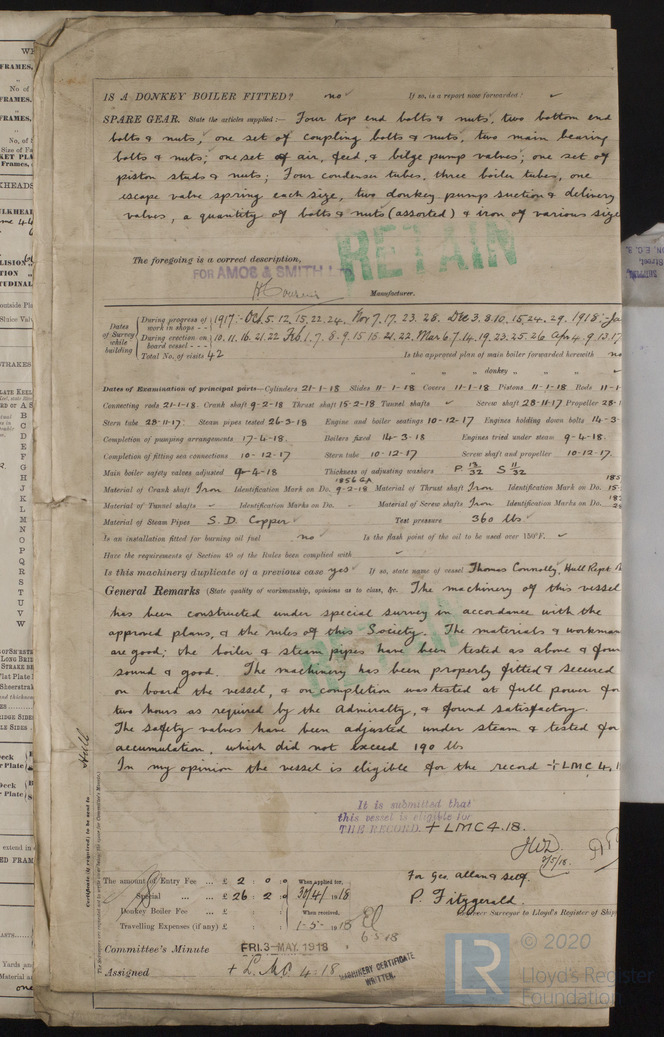 IS A DONKEY BOILER FITTED? no If so, is a report now forwarded? ✓
SPARE GEAR. State the articles supplied:— Four top end bolts & nuts, two bottom end
bolts & nuts, one set of coupling bolts & nuts, two main bearing
bolts & nuts; one set of air, feed, & bilge pump valves; one set of
piston studs & nuts; Four condenser tubes, three boiler tubes, one
escape valve spring each size, two donkey pump suction & delivery
valves, a quantity of bolts & nuts (assorted) & iron of various size
RETAIN
The foregoing is a correct description,
FOR AMOS & SMITH LTD
Manufacturer.
Dates of Survey while building
During progress of work in shops - - 1917:- Oct. 5. 12. 15. 22. 24. Nov 7. 17. 23. 28. Dec 3. 8. 10. 15. 24. 29. 1918:- Ja
During erection on board vessel - - - 10. 11. 16. 21. 22 Feb. 1. 7. 8. 9. 15. 16. 21. 22. Mar 6. 7. 14. 19. 23. 25. 26 Apr 4. 9. 13. 17
Total No. of visits 42 Is the approved plan of main boiler forwarded herewith no
" " " donkey " " "
Dates of Examination of principal parts—Cylinders 21-1-18 Slides 11-1-18 Covers 11-1-18 Pistons 11-1-18 Rods 11-1-
Connecting rods 21-1-18. Crank shaft 9-2-18 Thrust shaft 15-2-18 Tunnel shafts ✓ Screw shaft 28-11-17 Propeller 28-1
Stern tube 28-11-17: Steam pipes tested 26-3-18 Engine and boiler seatings 10-12-17 Engines holding down bolts 14-3-
Completion of pumping arrangements 17-4-18. Boilers fixed 14-3-18 Engines tried under steam 9-4-18.
Completion of fitting sea connections 10-12-17 Stern tube 10-12-17 Screw shaft and propeller 10-12-17.
Main boiler safety valves adjusted 9-4-18 Thickness of adjusting washers P 13/32 S 11/32
Material of Crank shaft Iron Identification Mark on Do. 1856 GA 9-2-18 Material of Thrust shaft Iron Identification Mark on Do. 185 15-
Material of Tunnel shafts ✓ Identification Marks on Do. Material of Screw shafts Iron Identification Marks on Do.
Material of Steam Pipes S. D. Copper ✓ Test pressure 360 lbs ✓
Is an installation fitted for burning oil fuel no ✓ Is the flash point of the oil to be used over 150°F. ✓
Have the requirements of Section 49 of the Rules been complied with ✓
Is this machinery duplicate of a previous case yes ✓ If so, state name of vessel Thomas Connolly, Hull Rept
General Remarks (State quality of workmanship, opinions as to class, &c. The machinery of this vessel
has been constructed under special survey in accordance with the
approved plans, & the rules of this Society. The materials & workman
are good; the boiler & steam pipes have been tested as above & foun
sound & good. The machinery has been properly fitted & secured
on board the vessel, & on completion was tested at full power for
two hours as required by the Admiralty, & found satisfactory.
The safety valves have been adjusted under steam & tested for
accumulation, which did not exceed 190 lbs
In my opinion the vessel is eligible for the record + LMC 4. 1
RETAIN
Hull
It is submitted that
this vessel is eligible for
THE RECORD. + LMC 4.18.
The amount of Entry Fee ... £ 2 : 0 : 0 When applied for,
Special ... ... £ 26 : 2 : 0 30/4/1918
Donkey Boiler Fee ... £ : : When received,
Travelling Expenses (if any) £ : : 1-5-1918
For Geo. Allan & self.
P. Fitzgerald.
Surveyor to Lloyd's Register of Ship
Committee's Minute FRI. 3-MAY. 1918
Assigned + L.M.C. 4-18
MACHINERY CERTIFICATE
WRITTEN.
LR © 2020
Lloyd's Register
Foundation